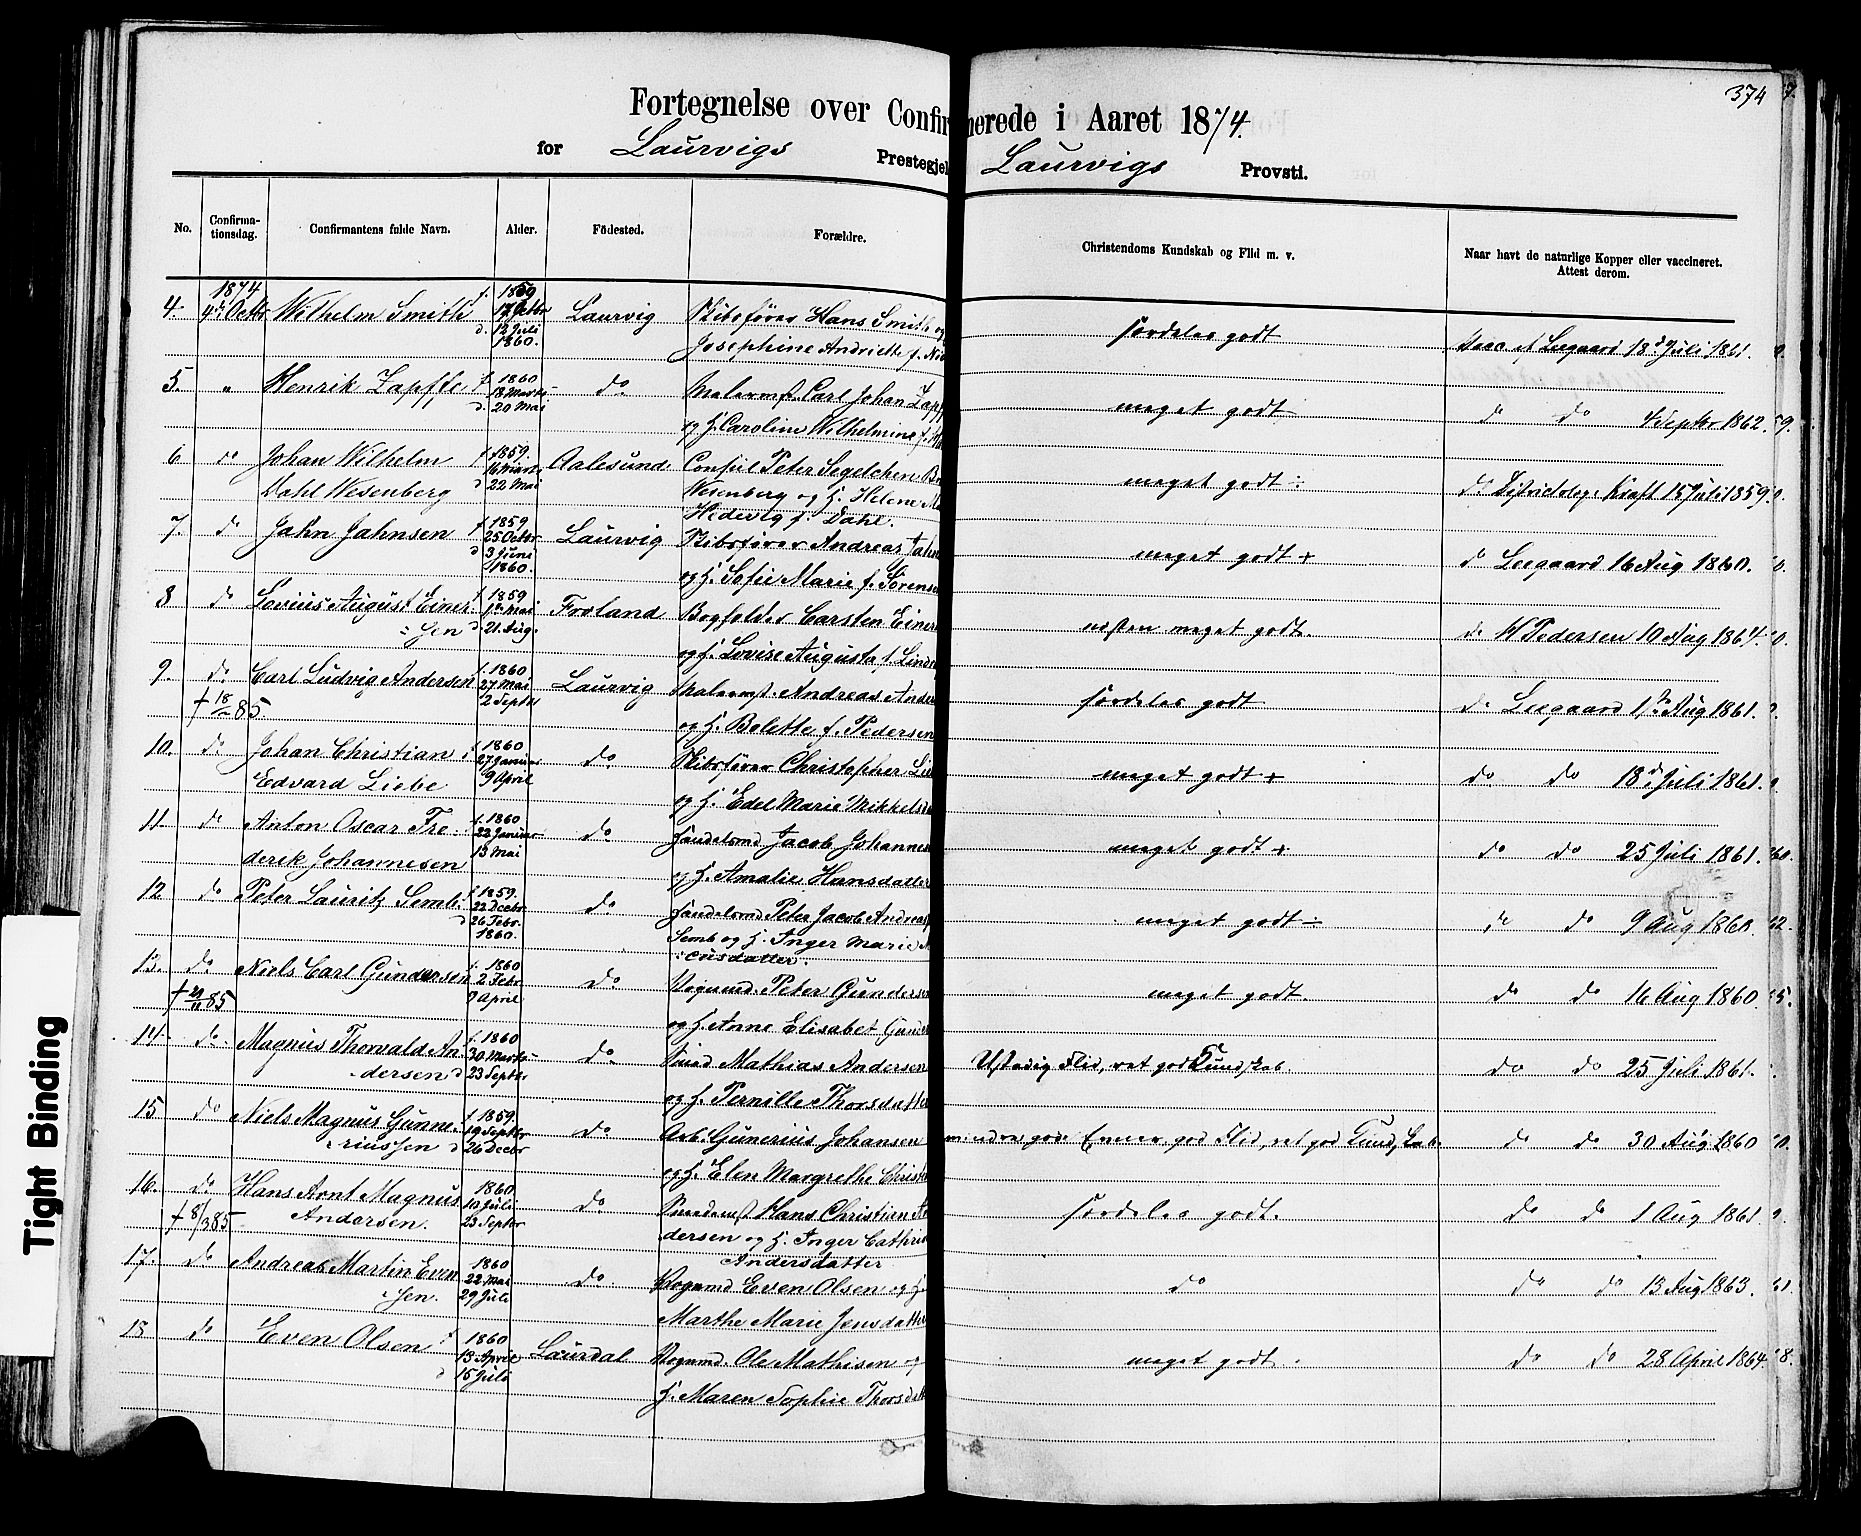 374
Fortegnelse over Confir merede i Aaret 1874.
for Laurvigs Prestegjel Laurvigs Provsti.
No. Confirma-tionsdag. Confirmantens fulde Navn. Alder. Födested. Forældre. Christendoms Kundskab og Flid m. v. Naar havt de naturlige Kopper eller vaccineret. Attest derom.
1874 f. 1859
4. 4de Octbr Wilhelm Smith 17 Octbr Laurvig Skibsfører Hans Smith og særdeles godt Vacc. af Leegaard 18d Juli 1861.
d. 12 Juli
1860. Josephine Andriette f.
5. " Henrik Zapffe f. 1860 do Malermst. Carl Johan Zapf meget godt d do 4 Septbr 1862.
18 Marts
d. 20 Mai og H. Caroline Wilhelmine f.
6 do Johan Wilhelm f. 1859. Aalesund Consul Peter Segelchen meget godt ÷ do Districtslæge Kraft 15 Juli 1859.
16 Marts
Dahl Wesenberg d 22 Mai Wesenberg og H. Helene
Hedevig f. Dahl.
7. do Jahn Jahnsen f 1859. Laurvig Skibsfører Andreas Jahn meget godt + d Leegaard 16 Aug 1860.
25 Octbr
d 3 Juni
1860. og H. Sofie Marie f. Sörens
8 do Lovius August Einer- f. 1859 Froland Bogholder Carsten Einer nesten meget godt. do W Pedersen 10 Aug 1864.
1ste Mai
sen d. 21. Aug. og H. Lovise Augusta f. Lind
9. do Carl Ludvig Andersen f. 1860 Laurvig Malermst. Andreas Ander særdeles godt do Leegaard 1ste Aug 1861.
27 Mai
† 18/ 85 2 Septbr og H. Bolette f. Pedersen
10. do Johan Christian f. 1860 do Skibsfører Christopher Lie meget godt + do do 18d Juli 1861.
27 Januar
Edvard Liebe 9 April og H. Edel Marie Mikkels
11. do Anton Oscar Fre- f. 1860 do Handelsmd Jacob Johannes meget godt + do do 25 Juli 1861.
22 Januar
derik Johannesen 13 Mai og H. Amalie Hansdatter
12 do Peter Lauritz Semb f 1859. do Handelsmd Peter Jacob Andreas meget godt ÷ do 9 Aug 1860.
22 Decbr
d 26 Febr. Semb og H. Inger Marie
1860. cusdatter.
13. do Niels Carl Gundersen f. 1860 do Vognmd. Peter Gunders meget godt. do do 16 Aug 1860
2 Febr
85 9 April og H. Anne Elisabet Gund
14. do. Magnus Thorvald An- f. 1860 do Smed Mathias Andersen Ustadig Flid, ret god Kundskab. do do 25 Juli 1861.
30 Marts
dersen d 23 Septbr og H. Pernille Thorsdatte
15 do Niels Magnus Gunne- f 1859. do Arb. Gunerius Johansen mindre god Evner, god Flid, ret god Kundskab. do do 30 Aug 1860
19 Septbr
riussen d 26 Decbr og H. Elen Margrethe Christ
16. do Hans Arnt Magnus 1860. do Smedemst Hans Christian særdeles godt. do do 1 Aug 1861
10 Juli
† 8/3 85 Andersen. 23 Septbr dersen og H. Inger Cathri
Andersdatter
17. do Andreas Martin Even- 1860 do Vognmd Even Olsen og H. do do do 13 Aug 1863.
22 Mai
sen. 29 Juli Marthe Marie Jensdatter
18 do Even Olsen f 1860 Laurdal Vognmd. Ole Mathisen og meget godt do do 28 April 1864.
13 April
d 15 Juli H. Maren Sophie Thorsdatt
Tight Binding